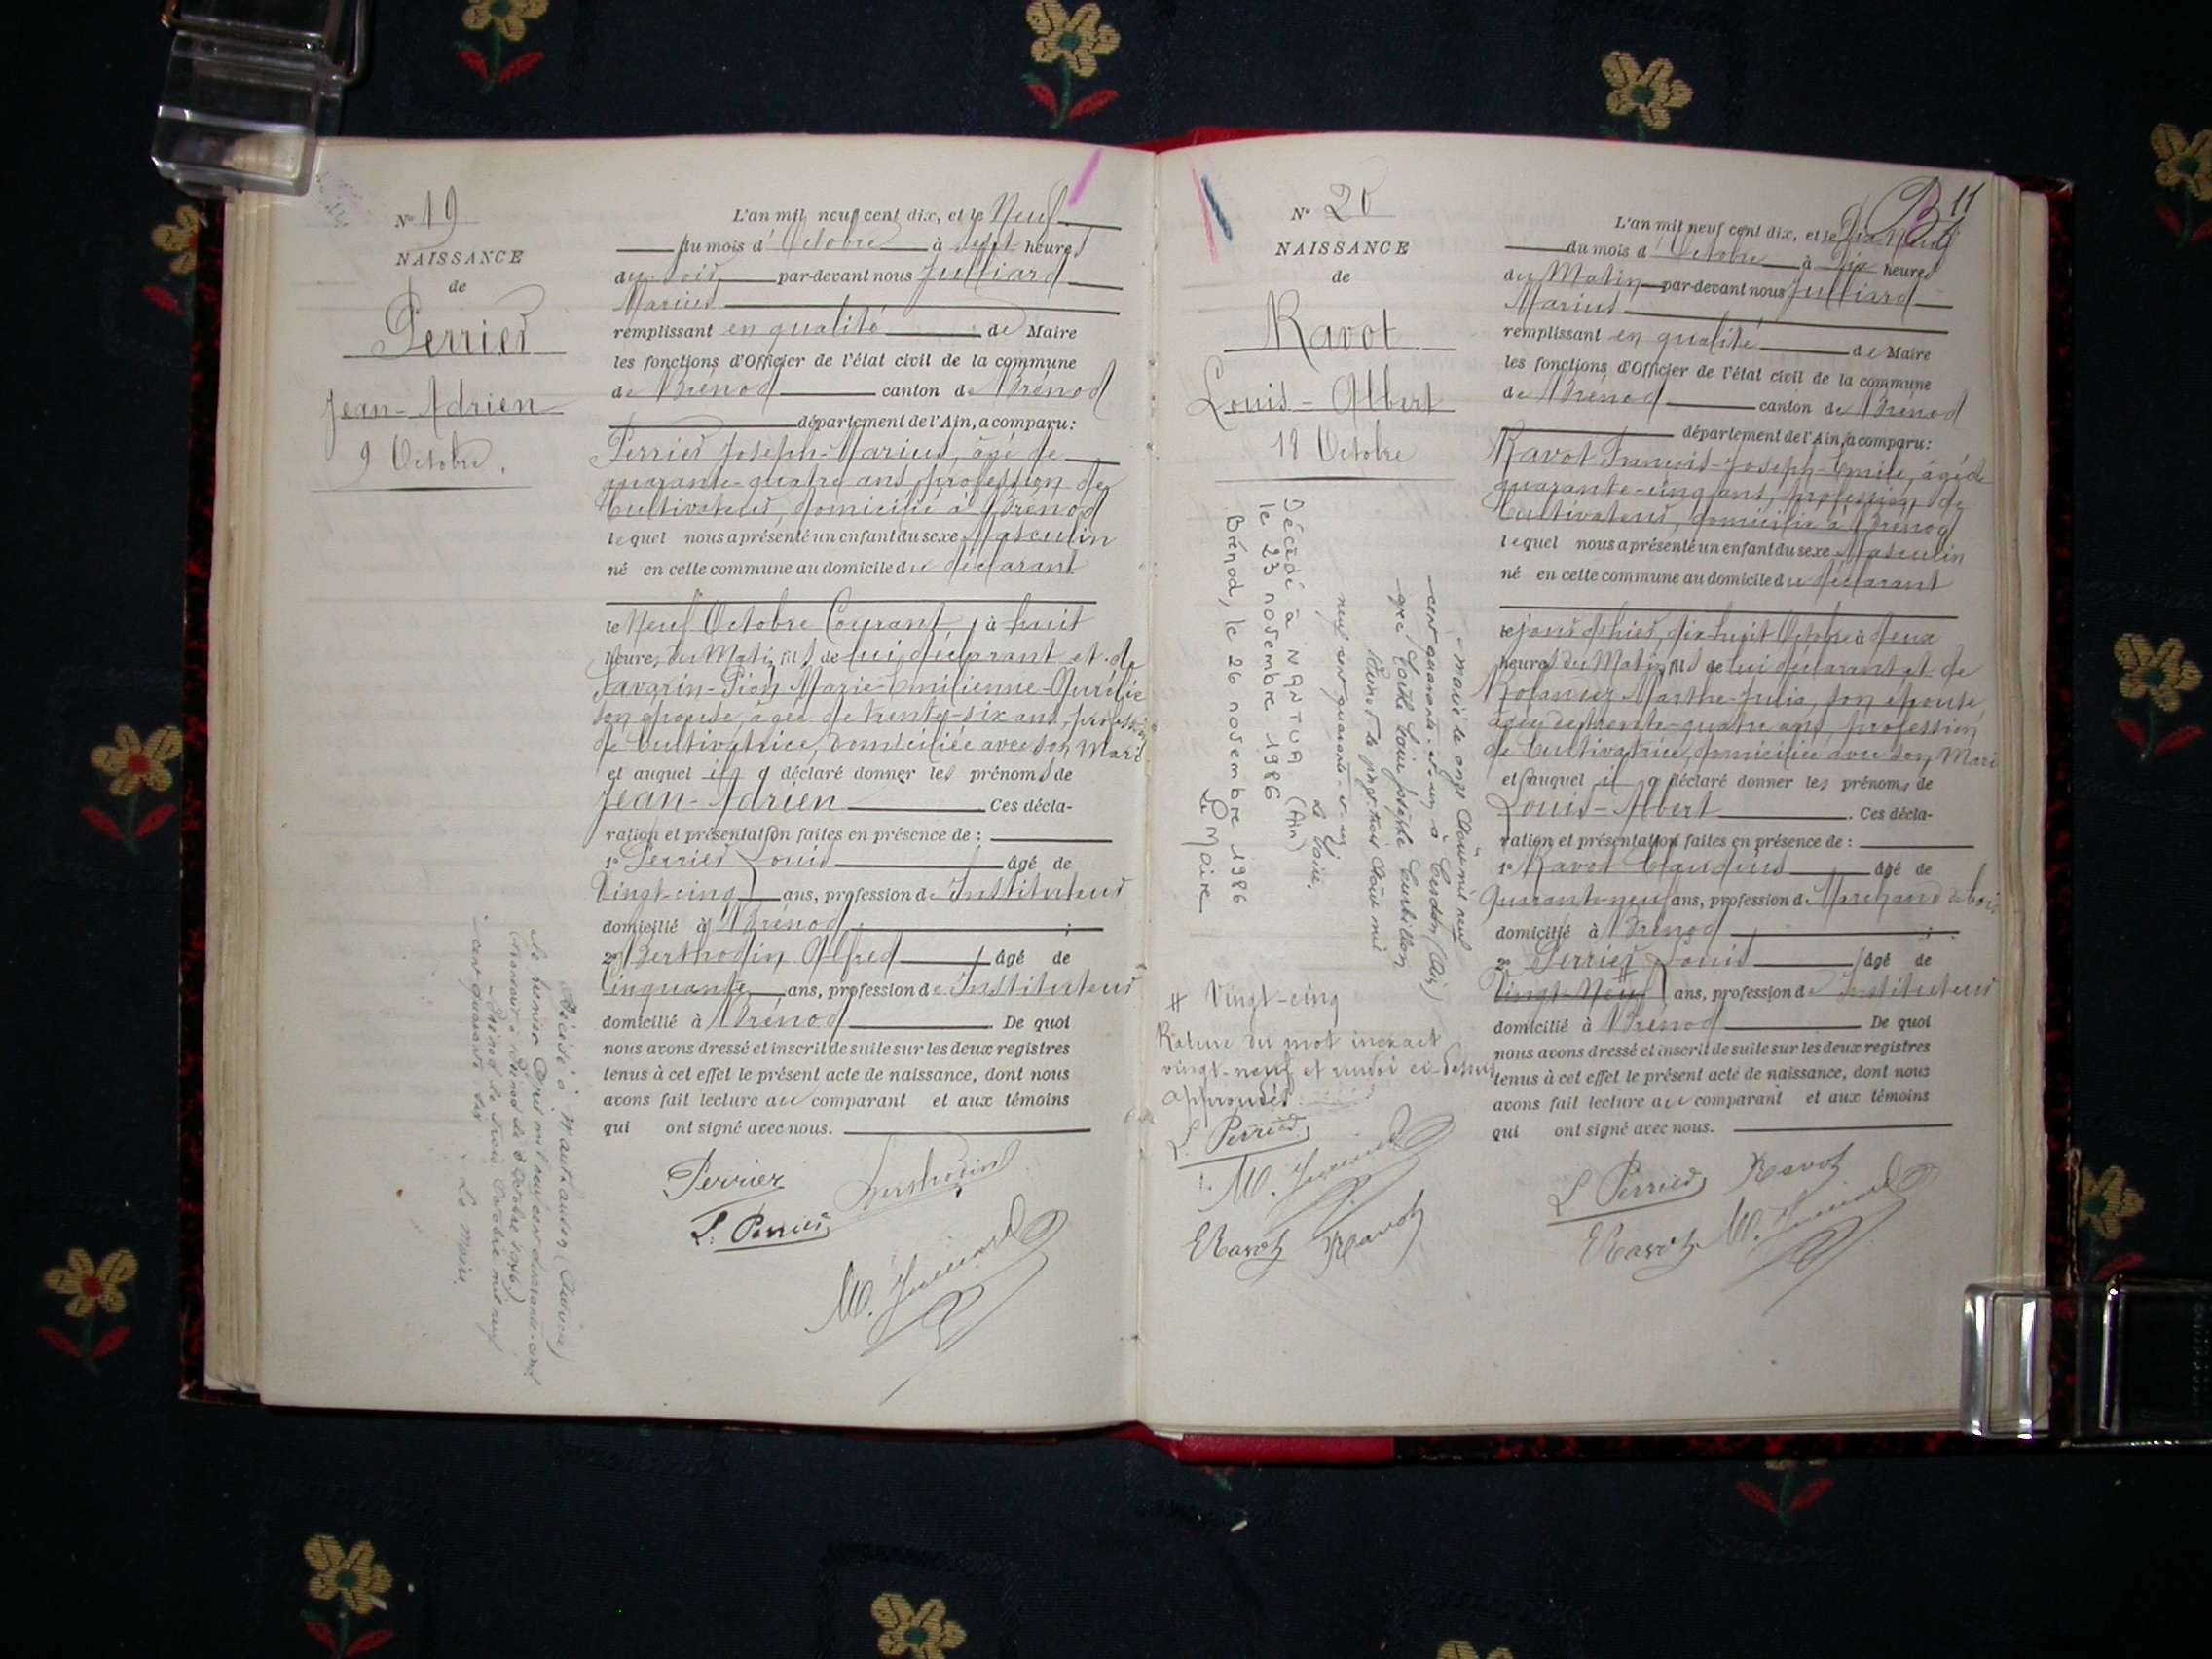 N° 19
NAISSANCE
de
Perrier
Jean-Adrien
9 Octobre.
L'an mil neuf cent dix, et le Neuf
du mois d'Octobre à Sept heures
du soir par-devant nous Julliard
Marius
remplissant en qualité de Maire
les fonctions d'Officier de l'état civil de la commune
de Brénod canton de Brénod
département de l'Ain, a comparu:
Perrier Joseph-Marius, âgé de
quarante-quatre ans, profession de
Cultivateur, domicilié à Brénod
lequel nous a présenté un enfant du sexe Masculin
né en cette commune au domicile du déclarant
le Neuf Octobre Courant, à huit
heures du Matin, fils de lui déclarant et de
Savarin-Pion Marie-Emilienne-Aurélie
son épouse, âgée de trente-six ans, profession
de Cultivatrice, domiciliée avec son Mari
et auquel il a déclaré donner les prénoms de
Jean-Adrien Ces décla-
ration et présentation faites en présence de :
1° Perrier Louis âgé de
Vingt-cinq ans, profession de Instituteur
domicilié à Brénod ;
2° Berthodin Alfred âgé de
Cinquante ans, profession de Instituteur
domicilié à Brénod De quoi
nous avons dressé et inscrit de suite sur les deux registres
tenus à cet effet le présent acte de naissance, dont nous
avons fait lecture au comparant et aux témoins
qui ont signé avec nous.
Perrier Berthodin
L. Perrier
M. Julliard
Décédé à Mauthausen (Autriche)
le premier Avril mil neuf cent quarante-cinq
Brénod le trois Octobre mil neuf
cent quarante six. Le Maire.
N° 20
NAISSANCE
de
Ravot
Louis-Albert
18 Octobre
Marié le onze Août mil neuf
cent quarante-et-un à Cerdon (Ain)
Brénod le vingt-trois Août mil
neuf cent quarante-et-un
Le Maire.
Décédé à NANTUA (Ain)
le 23 novembre 1986
Brénod, le 26 novembre 1986
Le Maire
# Vingt-cinq
Rature du mot inexact
vingt-neuf et renvoi ci-dessus
approuvés
L. Perrier
M. Julliard
E Ravot Ravot
B 11
L'an mil neuf cent dix, et le Dix-Neuf
du mois d'Octobre à Dix heures
du Matin par-devant nous Julliard
Marius
remplissant en qualité de Maire
les fonctions d'Officier de l'état civil de la commune
de Brénod canton de Brénod
département de l'Ain, a comparu:
Ravot François-Joseph-Emile, âgé de
quarante-cinq ans, profession de
Cultivateur, domicilié à Brénod
lequel nous a présenté un enfant du sexe Masculin
né en cette commune au domicile du déclarant
le jour d'hier, dix-huit Octobre à deux
heures du Matin, fils de lui déclarant et de
Marthe-Julia, son épouse,
âgée de trente-quatre ans, profession
de Cultivatrice, domiciliée avec son Mari
et auquel il a déclaré donner les prénoms de
Louis-Albert. Ces décla-
ration et présentation faites en présence de :
1° Ravot Claudius âgé de
Quarante-neuf ans, profession de Marchand de bois
domicilié à Brénod ;
2° Perrier Louis âgé de
Vingt-Neuf # ans, profession de Instituteur
domicilié à Brénod De quoi
nous avons dressé et inscrit de suite sur les deux registres
tenus à cet effet le présent acte de naissance, dont nous
avons fait lecture au comparant et aux témoins
qui ont signé avec nous.
L Perrier Ravot
E Ravot M. Julliard